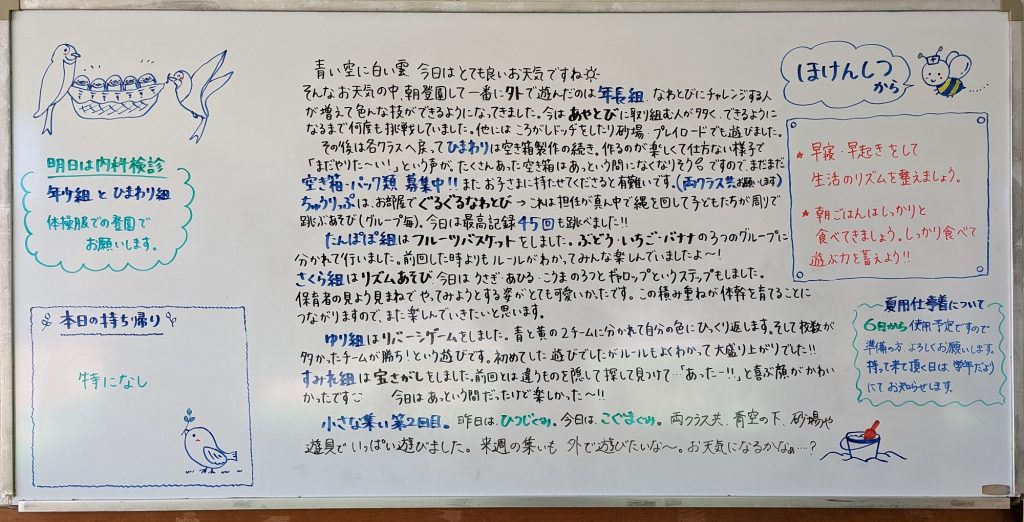 明日は内科検診
年少組 と ひまわり組
体操服での登園で
お願いします。
本日の持ち帰り
特になし
青い空に白い雲 今日はとても良いお天気ですね☼
そんなお天気の中、朝登園して一番に外で遊んだのは 年長組。なわとびにチャレンジする人
が増えて色んな技ができるようになってきました。今は あやとびに取り組む人が多く、できるように
なるまで何度も挑戦していました。他には ころがしドッヂをしたり砂場 プレイロードでも遊びました。
その後は各クラスへ戻ってひまわりは空き箱製作の続き。作るのが楽しくて仕方ない様子で
「まだやりた〜い!」という声が。たくさんあった空き箱はあっという間になくなりそうですので、まだまだ
空き箱・パック類 募集中!! またお子さまに持たせてくださると有難いです。(両クラス共お願いします)
ちゅうりっぷは、お部屋でぐるぐるなわとび → これは担任が真ん中で縄を回して子どもたちが周りで
跳ぶあそび(グループ毎)。今日は最高記録 45回も跳べました!!
たんぽぽ組はフルーツバスケットをしました。ぶどう・いちご・バナナの3つのグループに
分かれて行いました。前回した時よりもルールがわかってみんな楽しんでいましたよ〜!
さくら組はリズムあそび。今日は うさぎ・あひる・こうまの3つとギャロップというステップもしました。
保育者の見よう見まねでやってみようとする姿がとても可愛いかったです。この積み重ねが体幹を育てることに
つながりますので、また楽しんでいきたいと思います。
ゆり組はリバーシゲームをしました。青と黄の2チームに分かれて自分の色にひっくり返します。そして枚数が
多かったチームが勝ち!という遊びです。初めてした遊びでしたがルールもよくわかって大盛り上がりでした!!
すみれ組は宝さがしをしました。前回とは違うものを隠して探して見つけて…「あったー!!」と喜ぶ顔がかわい
かったです 今日はあっという間だったけど楽しかった〜!!
小さな集い第2回目。昨日は、ひつじぐみ。今日は こぐまぐみ。両クラス共、青空の下、砂場や
遊具でいっぱい遊びました。来週の集いも 外で遊びたいな〜。お天気になるかなぁ…?
ほけんしつ
から
★ 早寝・早起きをして
生活のリズムを整えましょう。
★ 朝ごはんはしっかりと
食べてきましょう。しっかり食べて
遊ぶ力を蓄えよう!!
夏用仕事着について
6月から使用予定ですので
準備の方、よろしくお願いします。
持って来て頂く日は、学年だより
にてお知らせします。